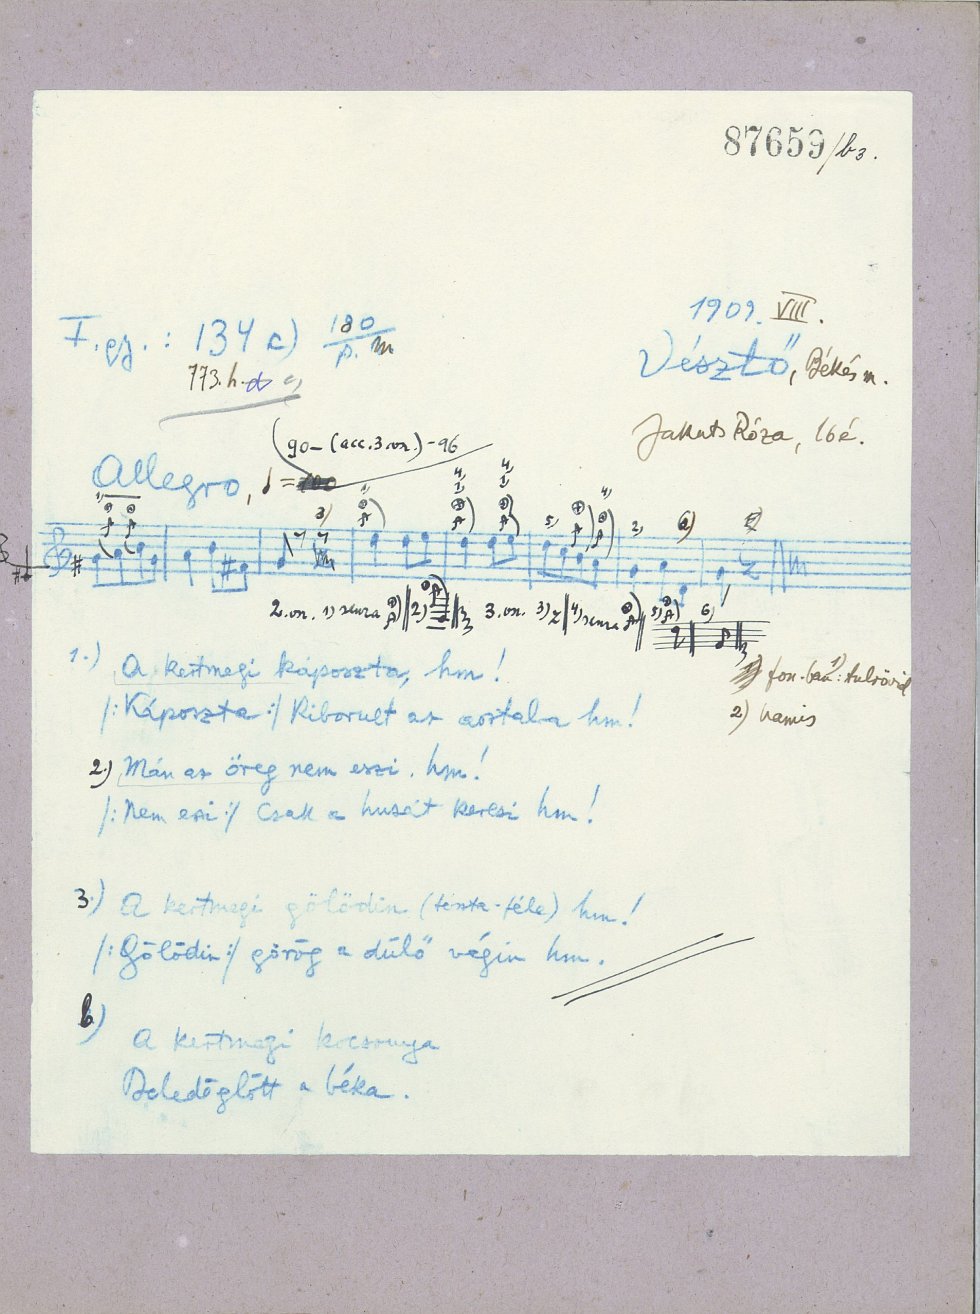 87659/b3.
1909. VIII.
F. gy. : 134 c) 180/p. m
Vésztő, Békés m.
773. h.
Jakuts Róza, 16 é.
90-(acc. 3. on.)-96
Allegro, =
2. on. 1) senza 2) 3. on. 3) 4) senza 5) 6)
fon.-ban 1): tulrövid
2) hamis
1.) A kertmegi káposzta, hm!
/: Káposzta :/ Kiborult az asztalra hm!
2.) Mán az öreg nem eszi. hm!
/: Nem eszi :/ Csak a husát keresi hm!
3.) A kertmegi gölödin (tészta-féle) hm!
/: Gölödin :/ görög a dülő végin hm.
b) A kertmegi kocsonya
Beledöglött a béka.